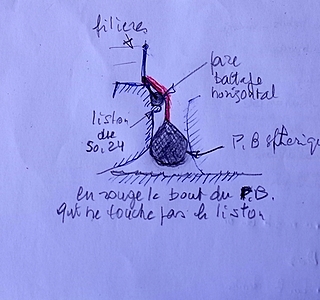 filières
pare
battage
horizontal
liston
du
So, 24
P.B sphériq
en rouge le bout du P.B.
qui ne touche pas le liston